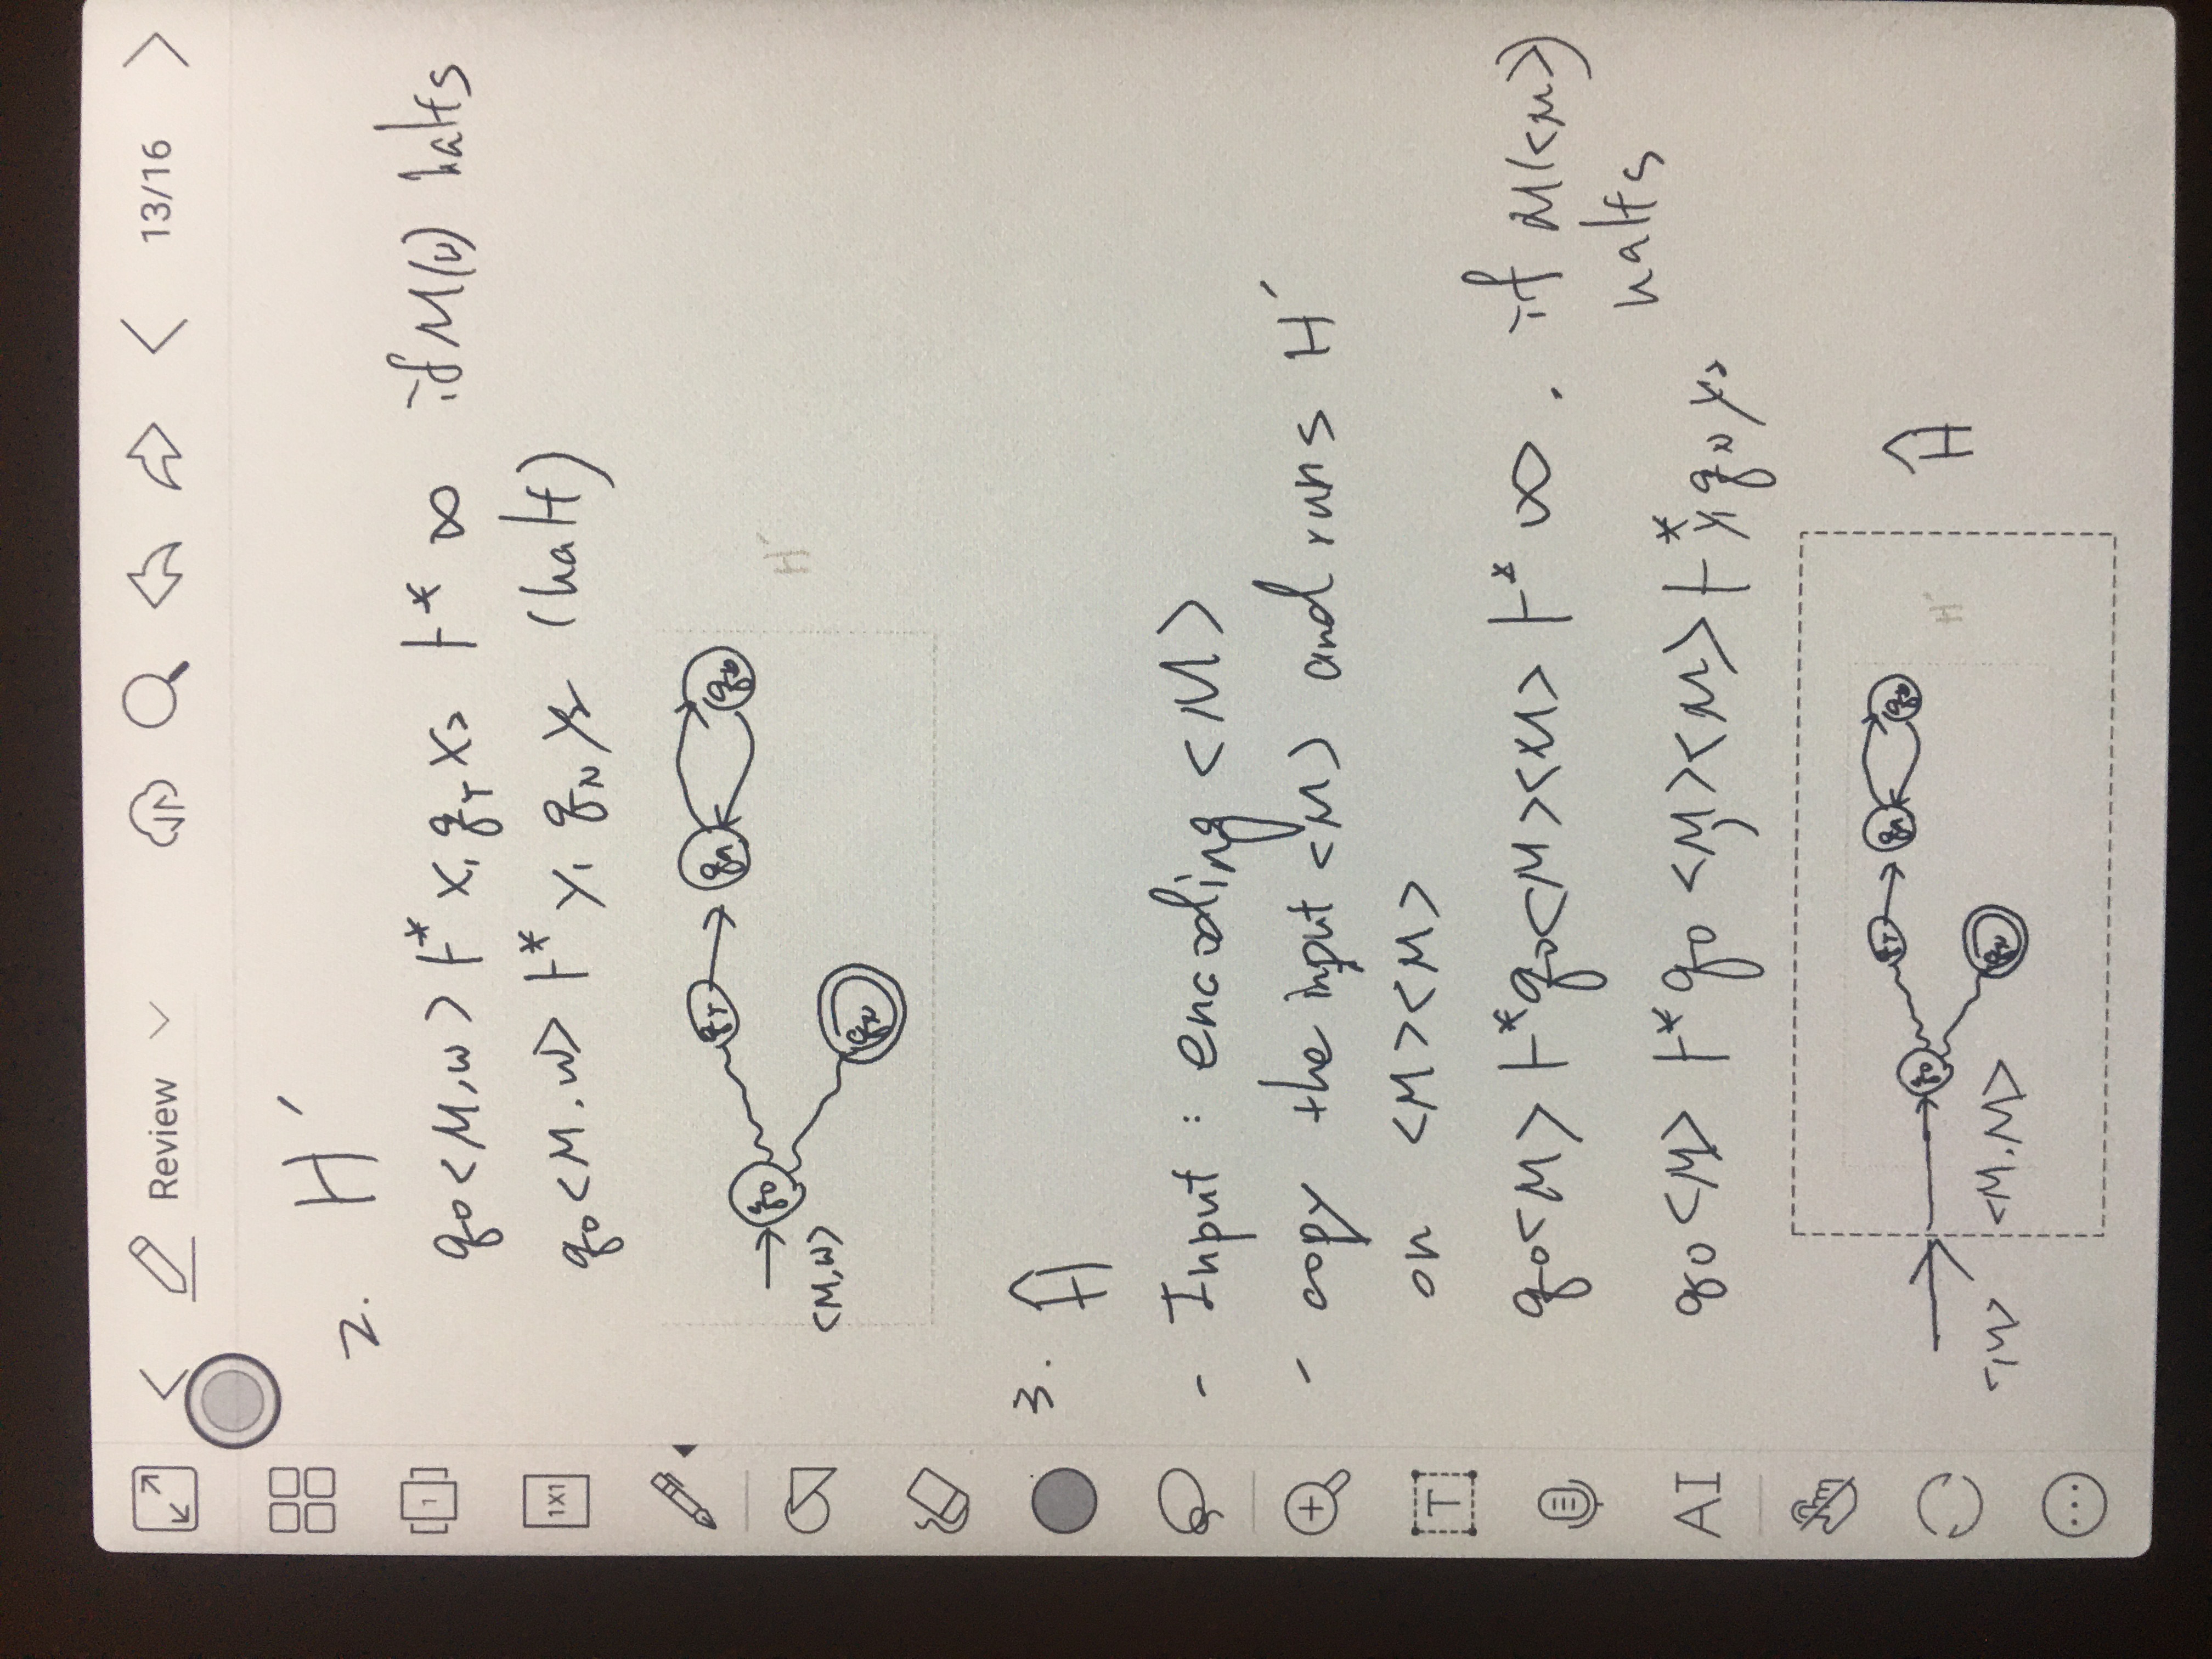 Review
13/16
1
1X1
T
AI
2. H′
q₀<M,w> ⊢* x₁ q_Y x₂ ⊢* ∞ if M(w) halts
q₀<M,w> ⊢* y₁ q_N y₂ (halt)
q₀ q_Y q_a q_b
H′
<M,w>
q_N
3. Ĥ
- Input : encoding <M>
- copy the input <M> and runs H′
on <M><M>
q₀<M> ⊢* q₀<M><M> ⊢* ∞. if M(<M>)
halts
q₀<M> ⊢* q₀ <M><M> ⊢* y₁ q_N y₂
q₀ q_Y q_a q_b
H′
Ĥ
<M> <M.M>
q_N